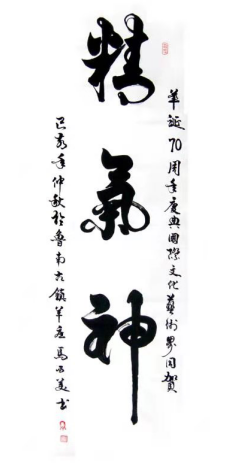 華誕70周年慶典國際文化藝術界同賀
精氣神
己亥年仲秋於魯南古鎮羊庄馬西美书